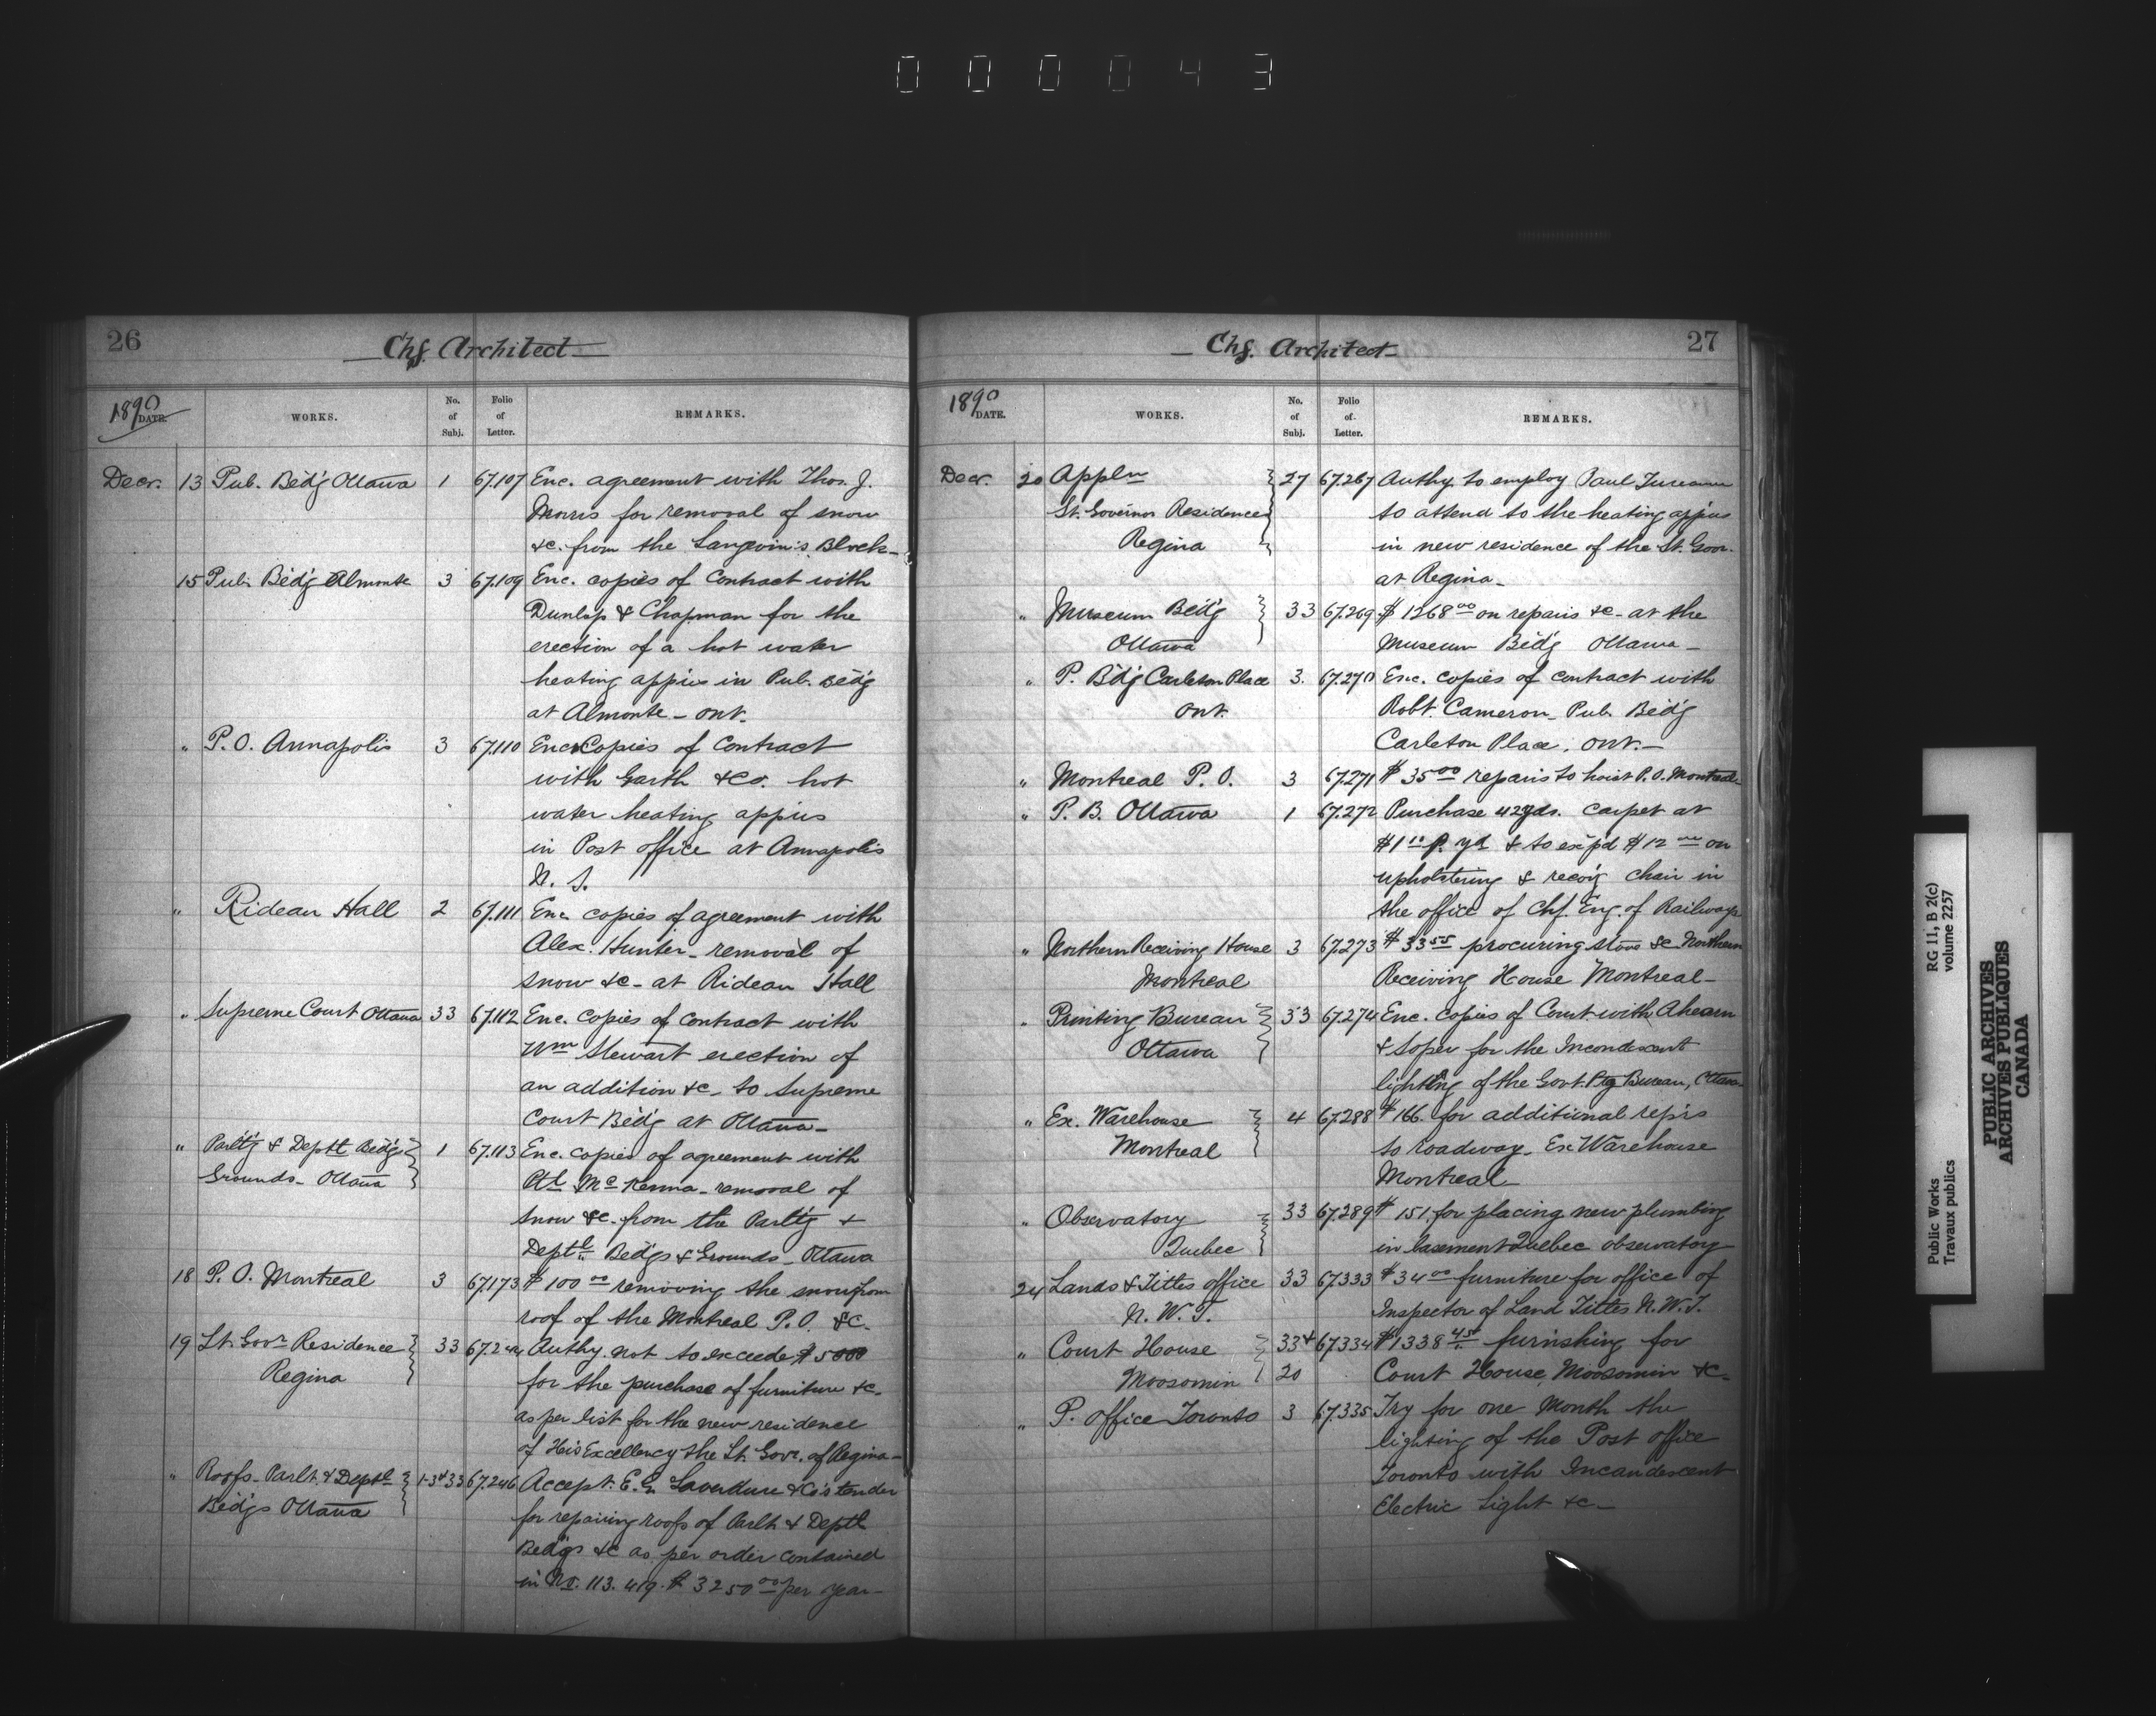 000043
26
Chf. Architect
1890 DATE.
WORKS.
No. of Subj.
Folio of Letter.
REMARKS.
Decr. 13 Pub. Bldg Ottawa 1 67.107 Enc. agreement with Thos. J.
Morris for removal of snow
&c. from the Langevin's Block
15 Pub. Bldg Almonte 3 67.109 Enc. copies of Contract with
Dunlop & Chapman for the
erection of a hot water
heating appius in Pub. Bldg
at Almonte - Ont.
" P.O. Annapolis 3 67.110 Enc. Copies of Contract
with Garth & Co. hot
water heating appius
in Post office at Annapolis
N. S.
" Rideau Hall 2 67.111 Enc. copies of agreement with
Alex. Hunter - removal of
snow &c - at Rideau Hall
" Supreme Court Ottawa 33 67.112 Enc. copies of contract with
Wm Stewart erection of
an addition &c - to Supreme
Court Bldg at Ottawa -
" Parltg & Deptl Bldgs 1 67.113 Enc. copies of agreement with
Grounds - Ottawa
McKenna - removal of
snow &c. from the Parltg &
Deptl Bldgs & Grounds - Ottawa
18 P.O. Montreal 3 67.173 $100 00 removing the snow from
roof of the Montreal P.O. &c.
19 Lt. Govr Residence 33 Authy. not to exceede $5000
Regina
for the purchase of furniture &c.
as per list for the new residence
of His Excellency the Lt. Govr. of Regina -
" Roofs - Parlt. & Deptl 1-3 & 33 67.246 Accept. E. G. Laverdure & Co's tender
Bldgs Ottawa
for repairing roofs of Parlt. & Deptl
Bldgs &c as per order contained
in No. 113.419. $3250 00 per year -
27
Chf. Architect
1890 DATE.
WORKS.
No. of Subj.
Folio of Letter.
REMARKS.
Decr. 20 Appln 27 67.267 Authy. to employ Paul
Lt. Governor Residence to attend to the heating appius
Regina in new residence of the Lt. Govr.
at Regina -
" Museum Bldg 33 67.269 $1268 00 on repairs &c - at the
Ottawa Museum Bldg Ottawa -
" P. Bldg Carleton Place 3. 67.270 Enc. copies of contract with
Ont. Robt. Cameron - Pub. Bldg
Carleton Place, Ont. -
" Montreal P.O. 3 67.271 $35 00 repairs to hoist P.O. Montreal -
" P. B. Ottawa 1 67.272 Purchase 42 yds. carpet at
$1 10 p. yd & to exp'd $12 00 on
upholstering & recov'g chair in
the office of Chf. Eng. of Railways
" Northern Receiving House 3 67.273 $33 55 procuring stove &c Northern
Montreal Receiving House Montreal -
" Printing Bureau 33 67.274 Enc. copies of Cont. with Ahearn
Ottawa & Soper for the Incandescent
lighting of the Govt. Ptg Bureau, Ottawa
" Ex. Warehouse 4 67.288 $166. for additional rep'rs
Montreal to roadway - Ex. Warehouse
Montreal
" Observatory 33 67.289 $151. for placing new plumbing
Quebec in basement Quebec observatory
24 Lands & Titles office 33 67.333 $34 00 furniture for office of
N. W. T. Inspector of Land Titles N.W.T.
" Court House 33 & 67.334 $1338 45 furnishing for
Moosomin 20 Court House, Moosomin &c -
" P. office Toronto 3 67.335 Try for one Month the
lighting of the Post office
Toronto with Incandescent
Electric Light &c -
Public Works
Travaux publics
RG 11, B 2(c)
volume 2257
PUBLIC ARCHIVES
ARCHIVES PUBLIQUES
CANADA